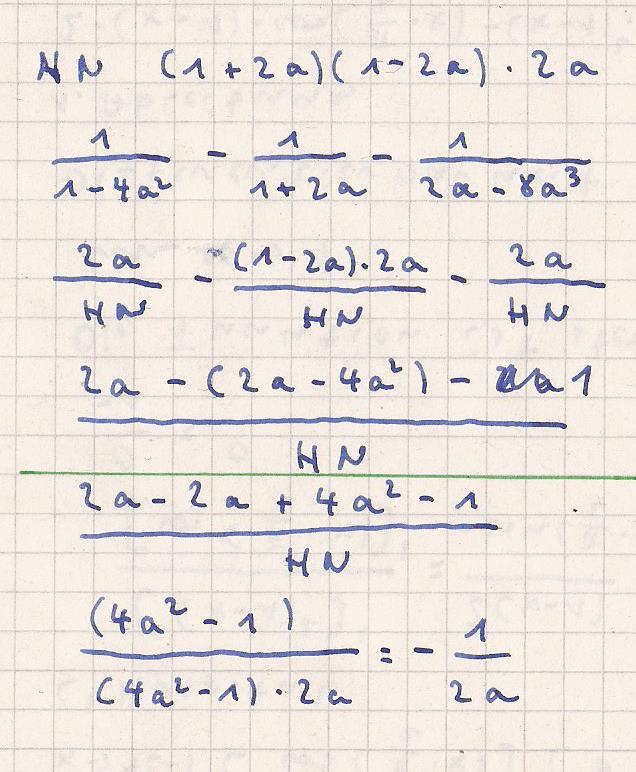 HN (1+2a)(1-2a) · 2a
1/(1-4a²) - 1/(1+2a) - 1/(2a-8a³)
2a/HN - (1-2a)·2a/HN - 2a/HN
(2a - (2a-4a²) - 1)/HN
(2a-2a+4a²-1)/HN
(4a²-1)/((4a²-1)·2a) = - 1/(2a)